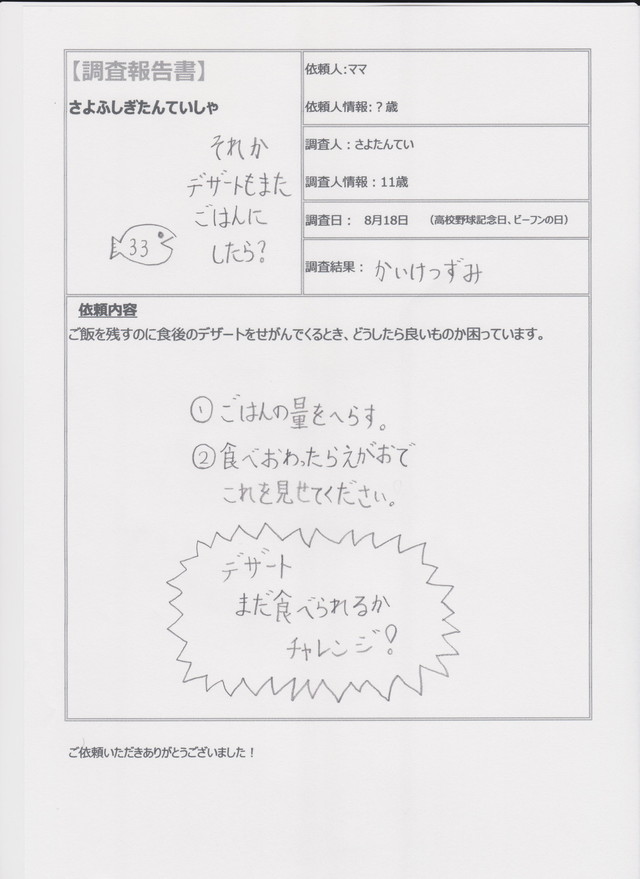 【調査報告書】
さよふしぎたんていしゃ
それか
デザートもまた
ごはんに
したら?
33
依頼人:ママ
依頼人情報:?歳
調査人:さよたんてい
調査人情報:11歳
調査日: 8月18日 (高校野球記念日、ビーフンの日)
調査結果: かいけつずみ
依頼内容
ご飯を残すのに食後のデザートをせがんでくるとき、どうしたら良いものか困っています。
①ごはんの量をへらす。
②食べおわったらえがおで
これを見せてください。
デザート
まだ食べられるか
チャレンジ!
ご依頼いただきありがとうございました!